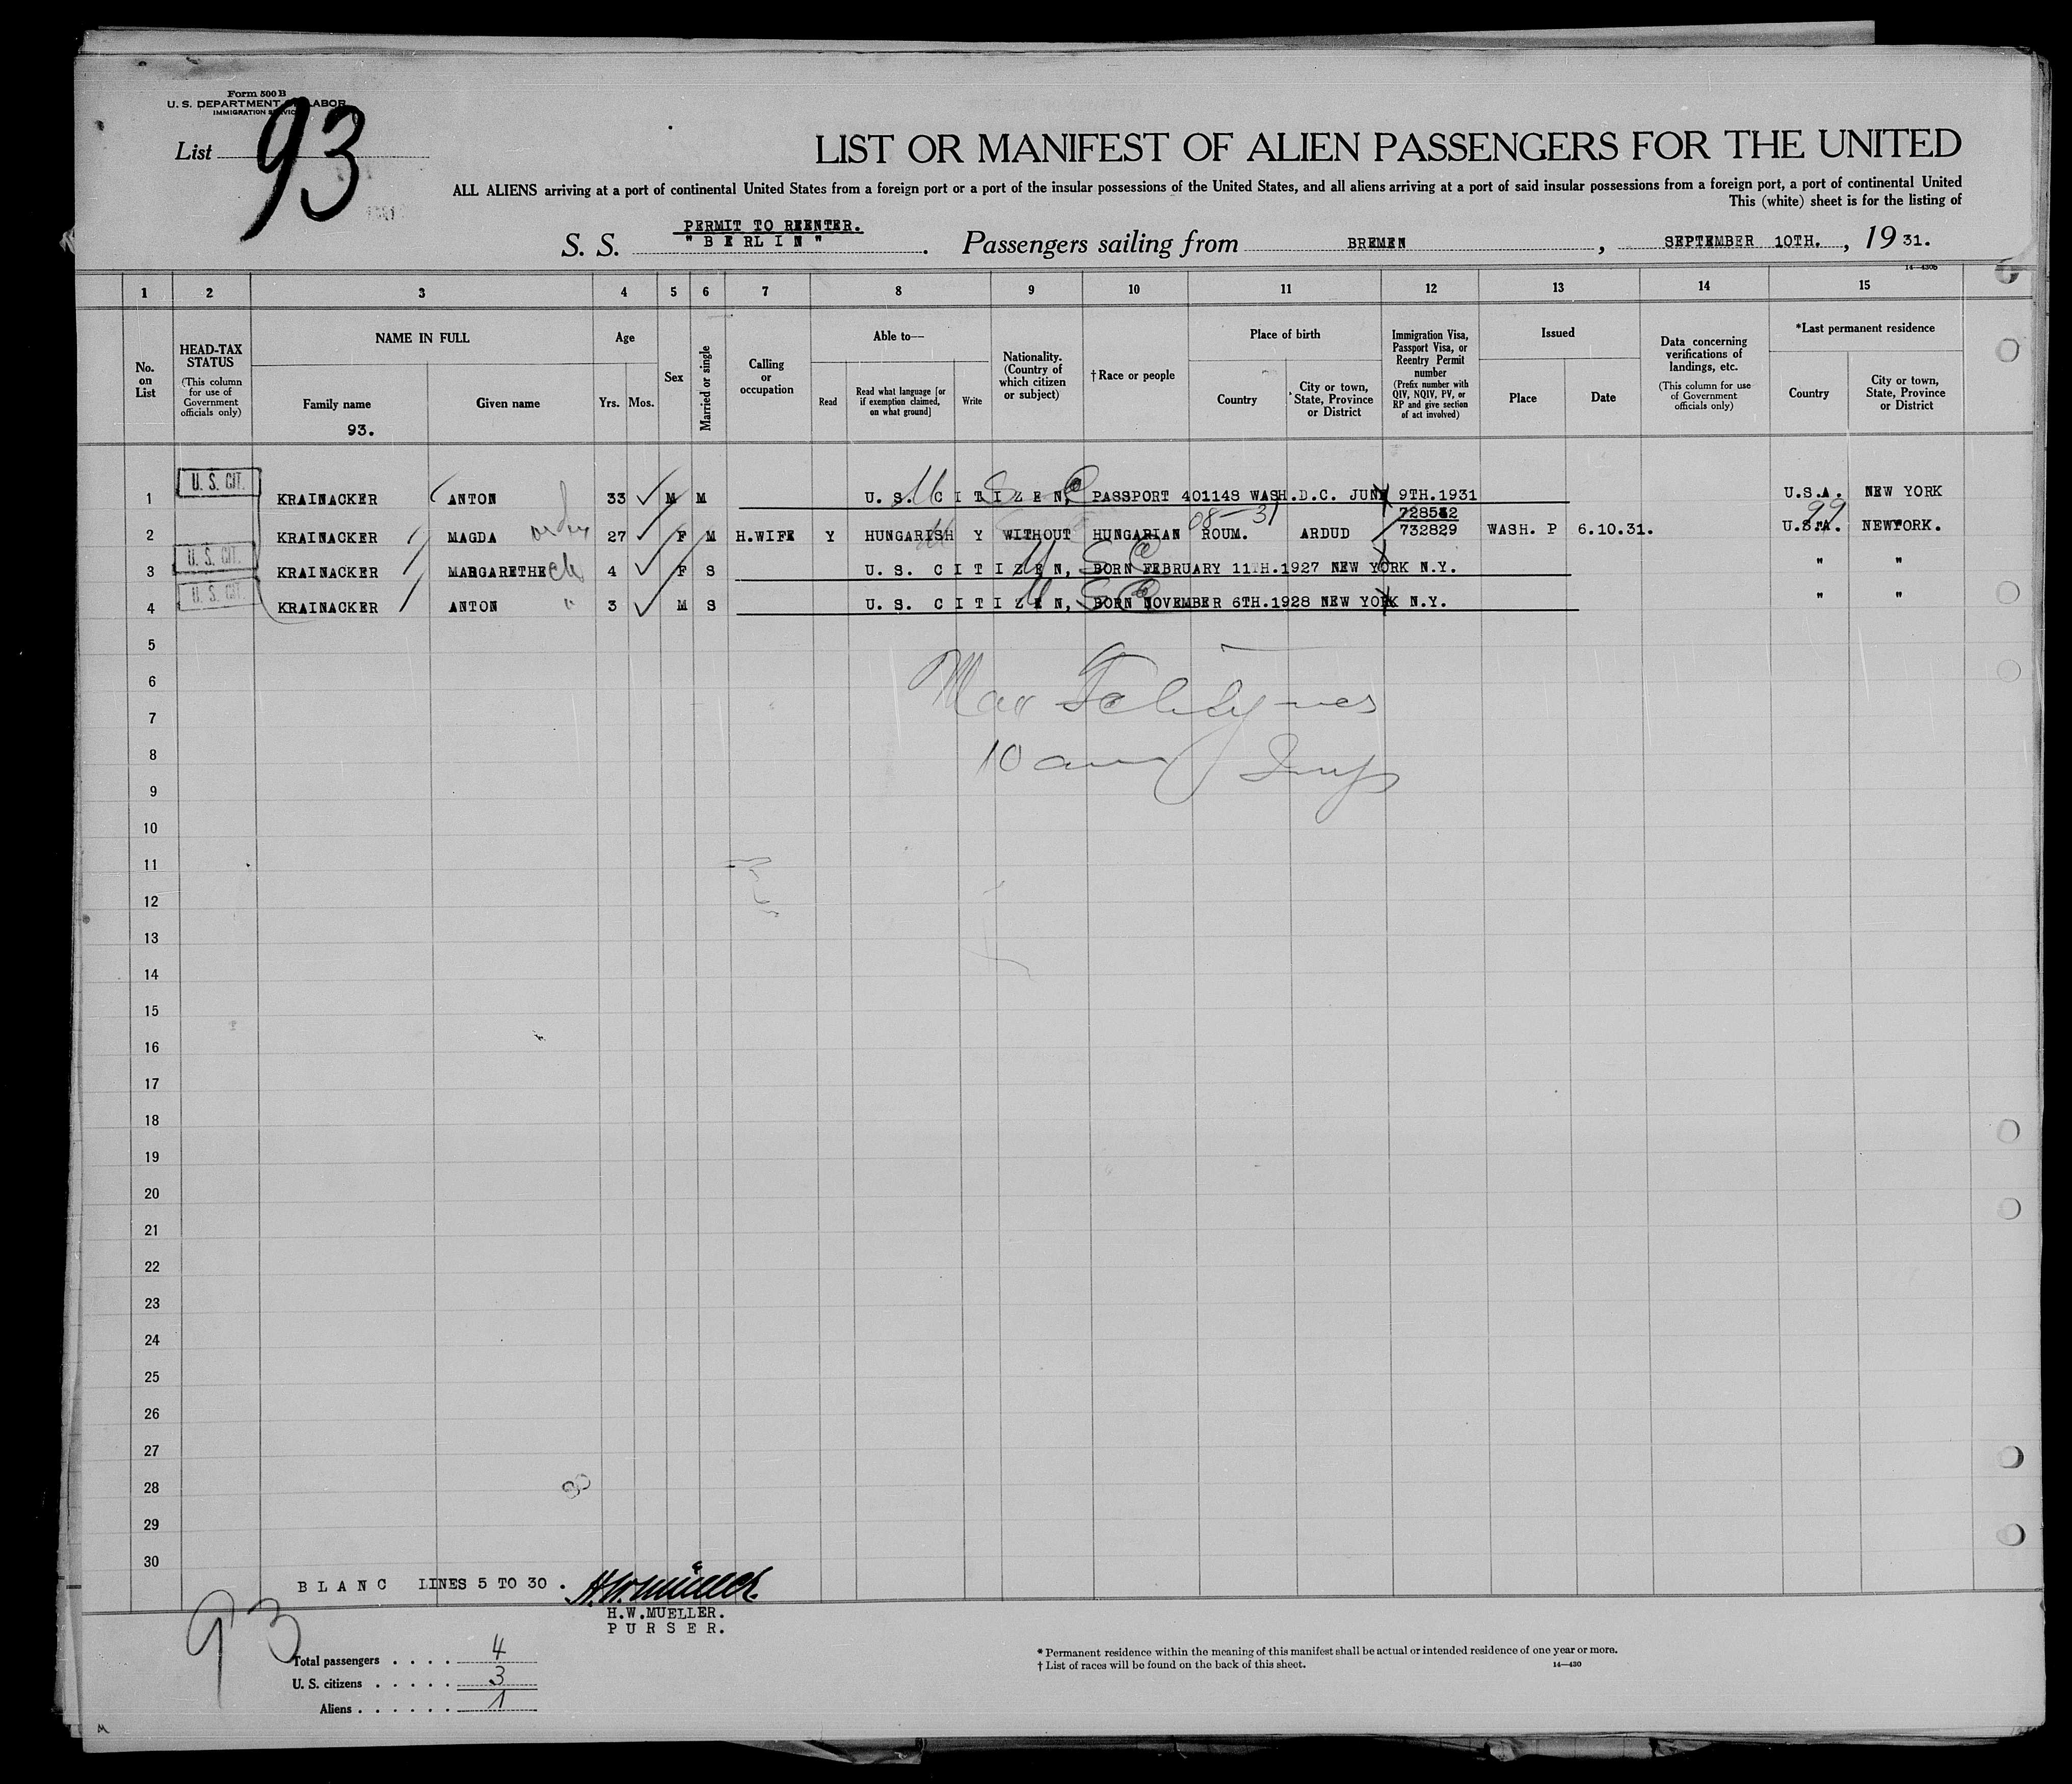 Form 500 B
U. S. DEPARTMENT LABOR
IMMIGRATION
List 93
LIST OR MANIFEST OF ALIEN PASSENGERS FOR THE UNITED
ALL ALIENS arriving at a port of continental United States from a foreign port or a port of the insular possessions of the United States, and all aliens arriving at a port of said insular possessions from a foreign port, a port of continental United
This (white) sheet is for the listing of
PERMIT TO REENTER.
S. S. "BERLIN". Passengers sailing from BREMEN, SEPTEMBER 10TH., 1931.
14—430b
1 2 3 4 5 6 7 8 9 10 11 12 13 14 15
No. on List
HEAD-TAX STATUS (This column for use of Government officials only)
NAME IN FULL
Family name
93.
Given name
Age
Yrs. Mos.
Sex
Married or single
Calling or occupation
Able to—
Read
Read what language [or if exemption claimed, on what ground]
Write
Nationality. (Country of which citizen or subject)
† Race or people
Place of birth
Country
City or town, State, Province or District
Immigration Visa, Passport Visa, or Reentry Permit number (Prefix number with QIV, NQIV, PV, or RP and give section of act involved)
Issued
Place
Date
Data concerning verifications of landings, etc. (This column for use of Government officials only)
*Last permanent residence
Country
City or town, State, Province or District
1 U. S. CIT. KRAINACKER ANTON 33 M M U.S. CITIZEN, PASSPORT 401148 WASH.D.C. JUNE 9TH.1931 U.S.A. NEW YORK
08—31 99
2 KRAINACKER MAGDA 27 F M H.WIFE Y HUNGARISH Y WITHOUT HUNGARIAN ROUM. ARDUD 732829 WASH. P 6.10.31. U.S.A. NEWYORK.
3 U. S. CIT. KRAINACKER MARGARETHE 4 F S U.S. CITIZEN, BORN FEBRUARY 11TH.1927 NEW YORK N.Y. " "
4 U. S. CIT. KRAINACKER ANTON 3 M S U.S. CITIZEN, BORN NOVEMBER 6TH.1928 NEW YORK N.Y. " "
5
6
7
8 10 am
9
10
11
12
13
14
15
16
17
18
19
20
21
22
23
24
25
26
27
28
29
30
BLANC LINES 5 TO 30.
H.W.MUELLER.
PURSER.
93
Total passengers . . . . 4
U. S. citizens . . . . . 3
Aliens . . . . . . 1
* Permanent residence within the meaning of this manifest shall be actual or intended residence of one year or more.
† List of races will be found on the back of this sheet.
14—430